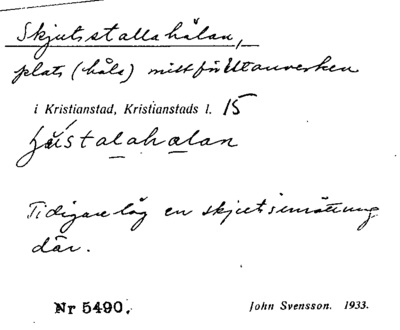 Skjutsstallahålan,
plats (håla) mitt för Utanverken
i Kristianstad, Kristianstads l. 15
Tidigare låg en skjutsinrättning
där.
Nr 5490.
John Svensson. 1933.